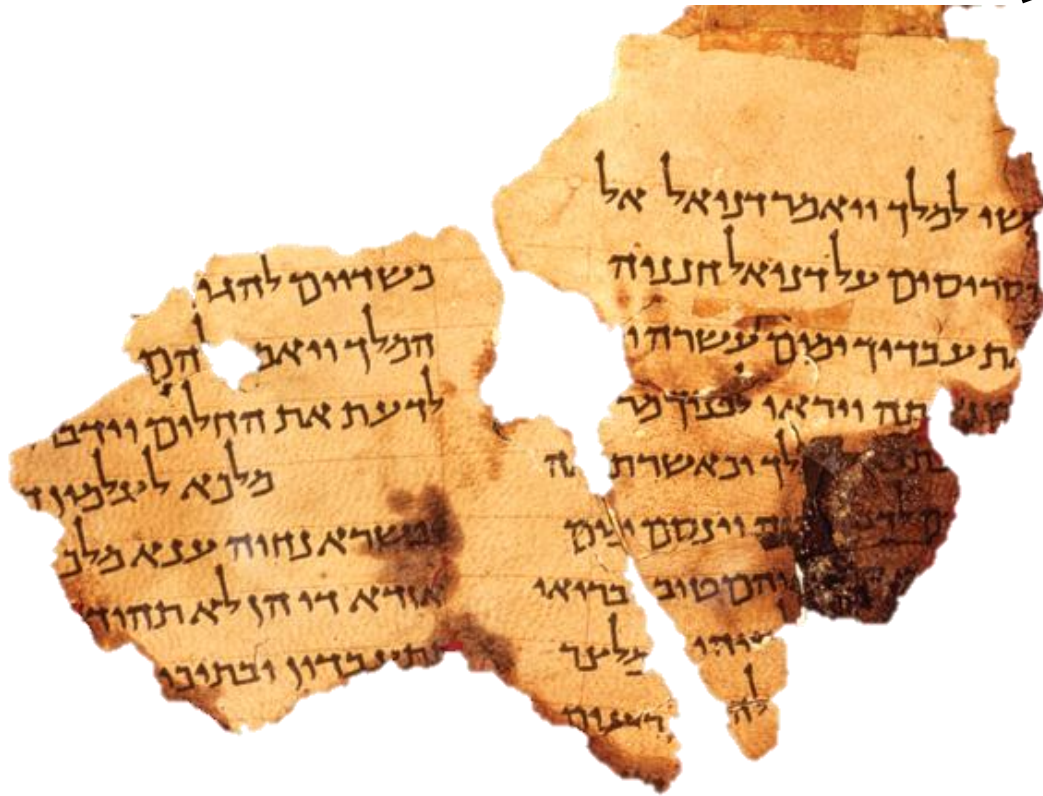 שו למלך ויאמר דניאל אל
סריסים על דניאל חנניה
ת עבדיך ימים עשרה וי
תה ויראו לפניך מר
לך וכאשר ת ה
וינסם ימים
יהם טוב בריאי
ויהי מלצר
לה
כשדיים להגי
המלך ויאמ הם
לדעת את החלום וידב
מלכא לעלמין
פשרא נחוה ענא מלכ
אזדא די הן לא תהוד
תתעבדון ובתיכו